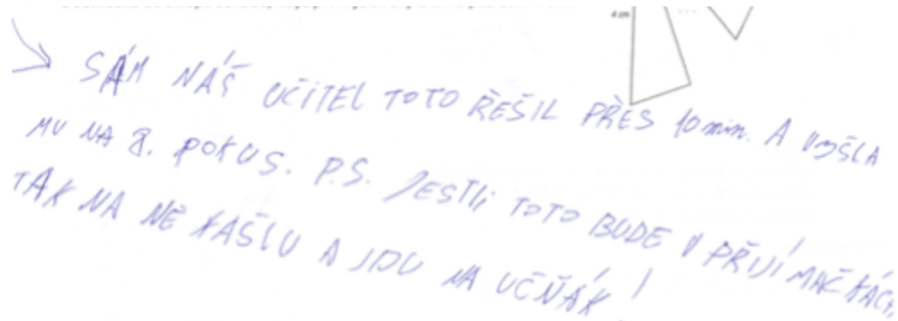 4 cm
SÁM NÁŠ UČITEL TOTO ŘEŠIL PŘES 10 min. A VYŠLA
MU NA 8. POKUS. P.S. JESTLI TOTO BUDE V PŘIJÍMAČKÁCH,
TAK NA NĚ KAŠLU A JDU NA UČŇÁK!